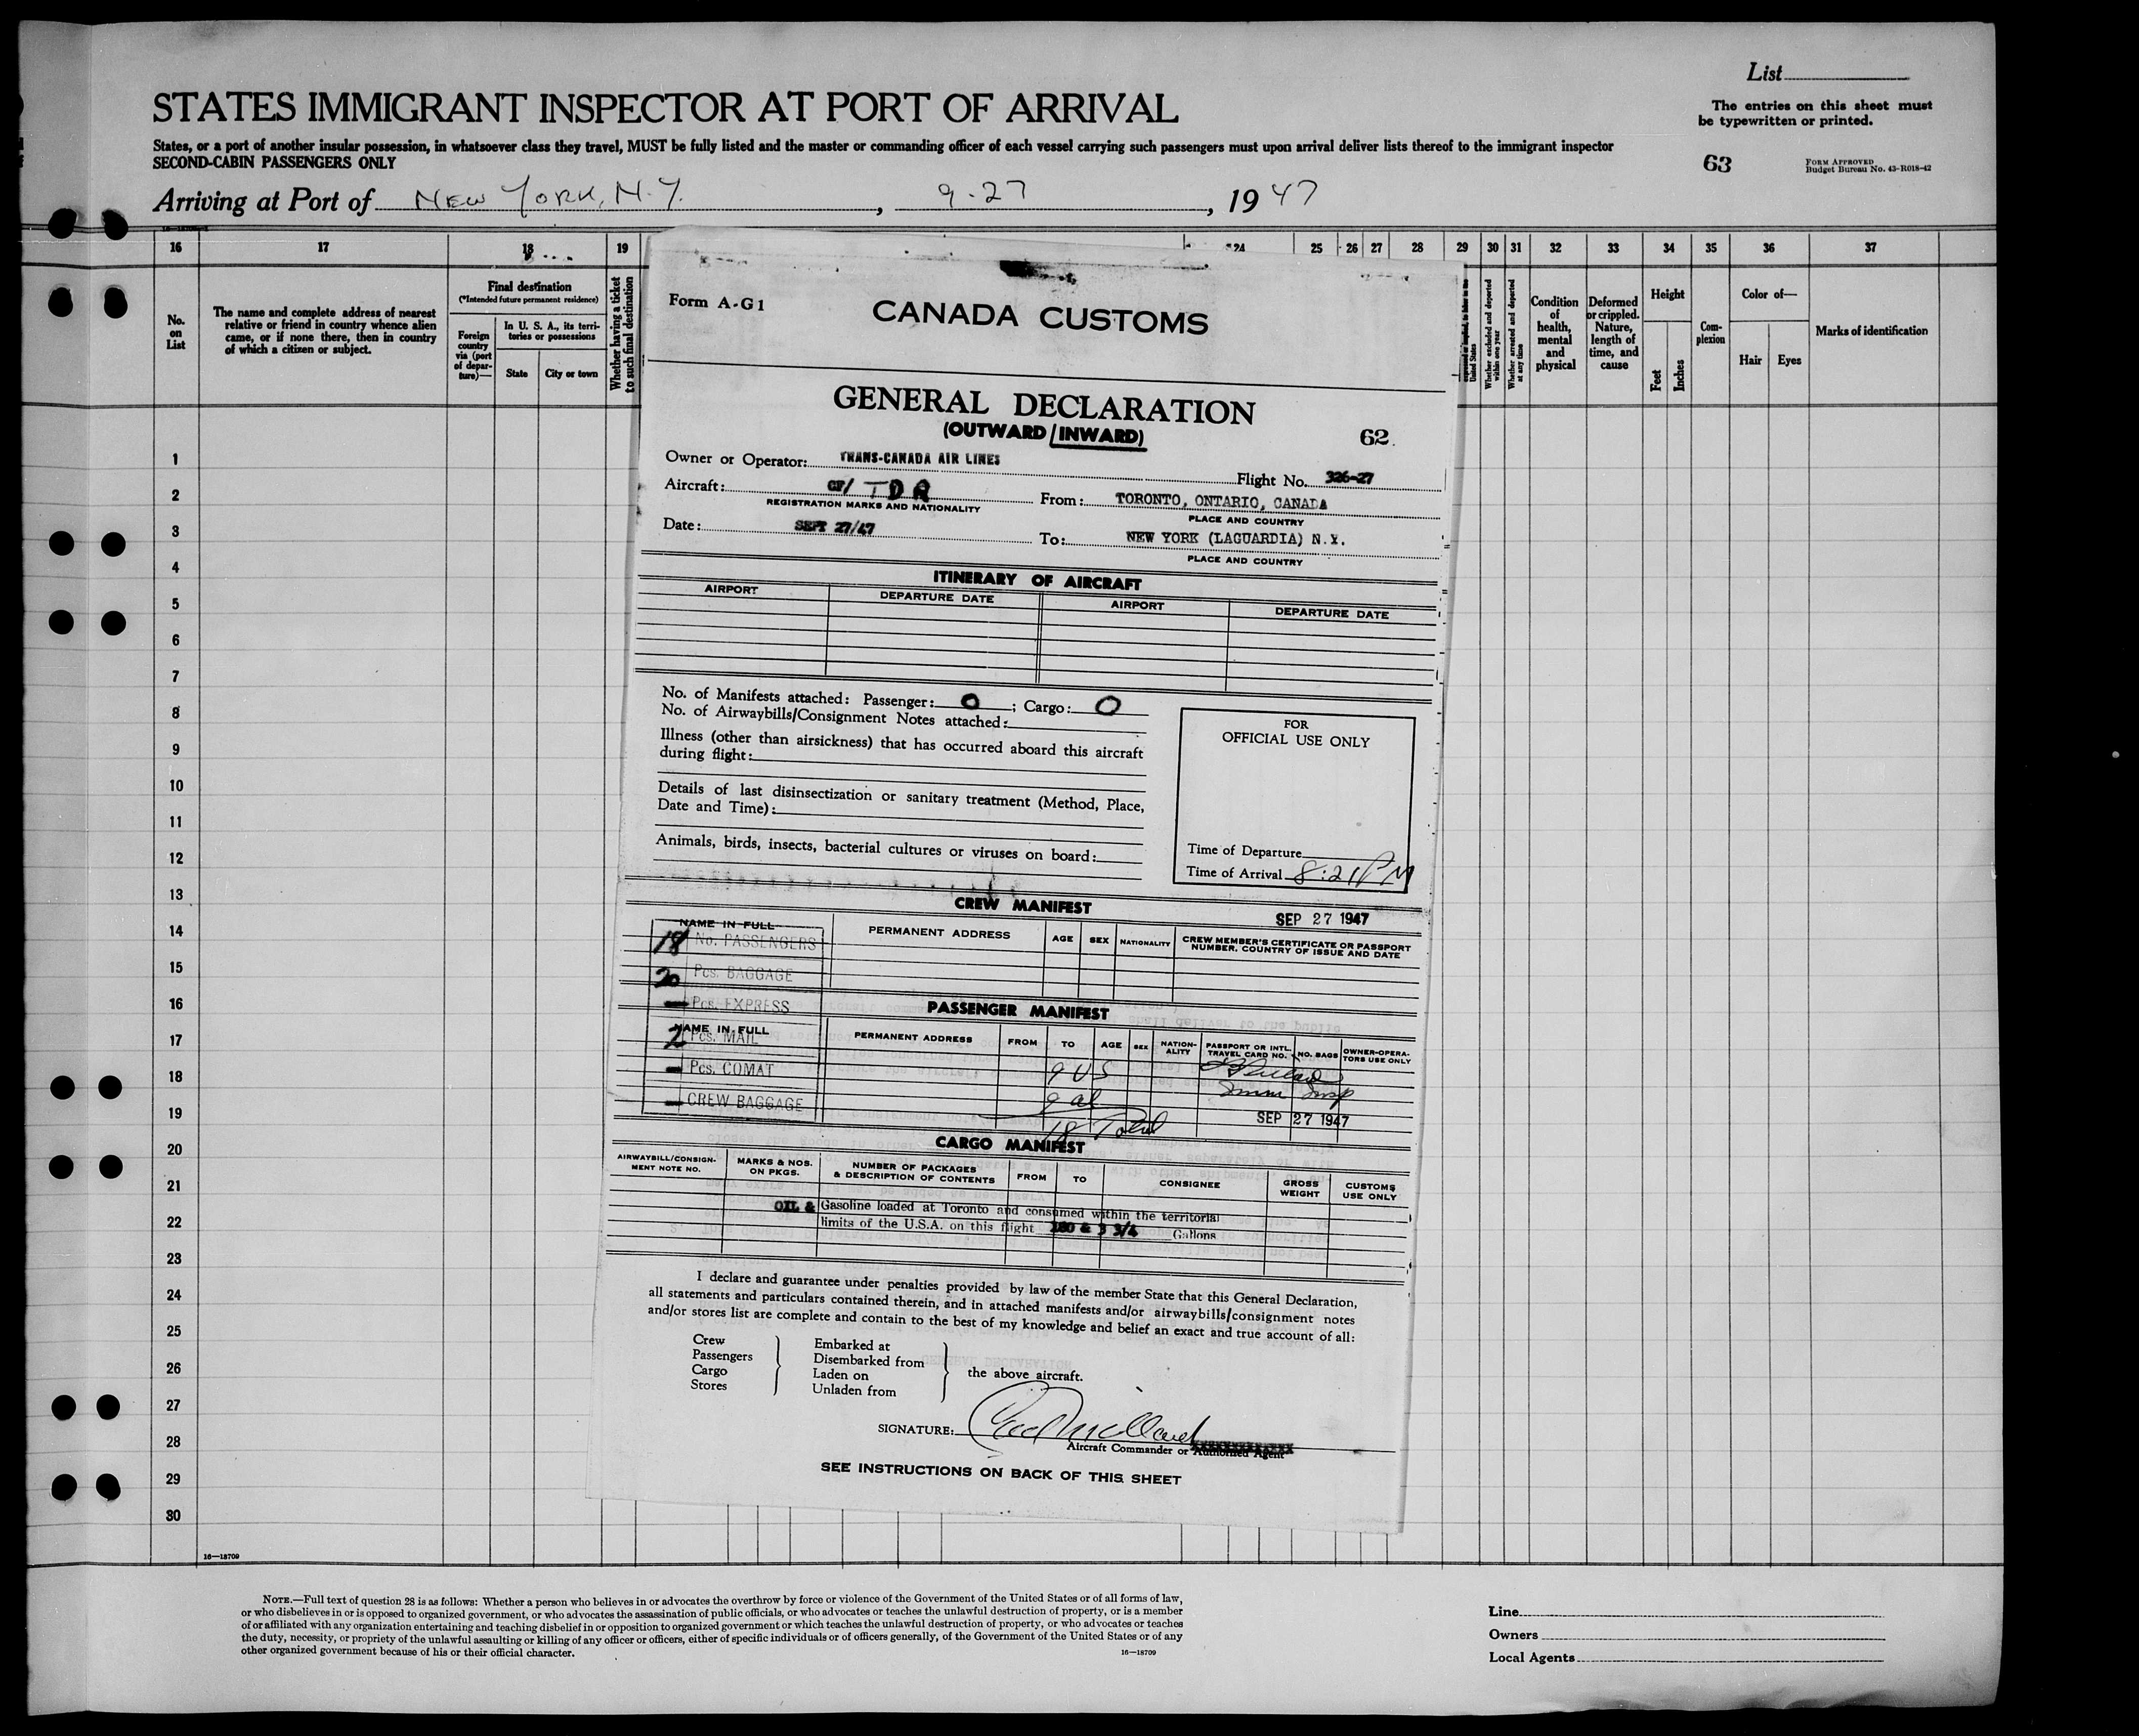 List
STATES IMMIGRANT INSPECTOR AT PORT OF ARRIVAL
The entries on this sheet must
be typewritten or printed.
States, or a port of another insular possession, in whatsoever class they travel, MUST be fully listed and the master or commanding officer of each vessel carrying such passengers must upon arrival deliver lists thereof to the immigrant inspector
SECOND-CABIN PASSENGERS ONLY
63
FORM APPROVED
Budget Bureau No. 43-R018-42
Arriving at Port of NEW YORK, N.Y., 9-27, 1947
16 17 18 19 24 25 26 27 28 29 30 31 32 33 34 35 36 37
No. on List
The name and complete address of nearest
relative or friend in country whence alien
came, or if none there, then in country
of which a citizen or subject.
Final destination
(*Intended future permanent residence)
Foreign country via (port of departure)—
In U. S. A., its territories or possessions
State
City or town
Whether having a ticket
to such final destination
United States
Whether excluded and deported
within one year
Whether arrested and deported
at any time
Condition of health, mental and physical
Deformed or crippled. Nature, length of time, and cause
Height
Feet
Inches
Com-
plexion
Color of—
Hair
Eyes
Marks of identification
1
2
3
4
5
6
7
8
9
10
11
12
13
14
15
16
17
18
19
20
21
22
23
24
25
26
27
28
29
30
16—18709
Form A-G1
CANADA CUSTOMS
GENERAL DECLARATION
(OUTWARD/INWARD)
62.
Owner or Operator: TRANS-CANADA AIR LINES
Flight No. 326-27
Aircraft: CF/ TDR
REGISTRATION MARKS AND NATIONALITY
From: TORONTO, ONTARIO, CANADA
PLACE AND COUNTRY
Date: SEPT 27/47
To: NEW YORK (LAGUARDIA) N.Y.
PLACE AND COUNTRY
ITINERARY OF AIRCRAFT
AIRPORT DEPARTURE DATE AIRPORT DEPARTURE DATE
No. of Manifests attached: Passenger: 0 ; Cargo: 0
No. of Airwaybills/Consignment Notes attached:
Illness (other than airsickness) that has occurred aboard this aircraft
during flight:
Details of last disinsectization or sanitary treatment (Method, Place,
Date and Time):
Animals, birds, insects, bacterial cultures or viruses on board:
FOR
OFFICIAL USE ONLY
Time of Departure
Time of Arrival 8:21 PM
CREW MANIFEST
SEP 27 1947
NAME IN FULL PERMANENT ADDRESS AGE SEX NATIONALITY CREW MEMBER'S CERTIFICATE OR PASSPORT
NUMBER, COUNTRY OF ISSUE AND DATE
18 No. PASSENGERS
20 Pcs. BAGGAGE
— Pcs. EXPRESS
2 Pcs. MAIL
— Pcs. COMAT
— CREW BAGGAGE
PASSENGER MANIFEST
NAME IN FULL PERMANENT ADDRESS FROM TO AGE SEX NATION-
ALITY PASSPORT OR INTL.
TRAVEL CARD NO. NO. BAGS OWNER-OPERA-
TORS USE ONLY
9 US
9 al
Imm Insp
18 Total
SEP 27 1947
CARGO MANIFEST
AIRWAYBILL/CONSIGN-
MENT NOTE NO. MARKS & NOS.
ON PKGS. NUMBER OF PACKAGES
& DESCRIPTION OF CONTENTS FROM TO CONSIGNEE GROSS
WEIGHT CUSTOMS
USE ONLY
OIL & Gasoline loaded at Toronto and consumed within the territorial
limits of the U.S.A. on this flight & 3 3/4 Gallons
I declare and guarantee under penalties provided by law of the member State that this General Declaration,
all statements and particulars contained therein, and in attached manifests and/or airwaybills/consignment notes
and/or stores list are complete and contain to the best of my knowledge and belief an exact and true account of all:
Crew Embarked at
Passengers Disembarked from
Cargo Laden on the above aircraft.
Stores Unladen from
SIGNATURE:
Aircraft Commander or Authorized Agent
SEE INSTRUCTIONS ON BACK OF THIS SHEET
NOTE.—Full text of question 28 is as follows: Whether a person who believes in or advocates the overthrow by force or violence of the Government of the United States or of all forms of law,
or who disbelieves in or is opposed to organized government, or who advocates the assassination of public officials, or who advocates or teaches the unlawful destruction of property, or is a member
of or affiliated with any organization entertaining and teaching disbelief in or opposition to organized government or which teaches the unlawful destruction of property, or who advocates or teaches
the duty, necessity, or propriety of the unlawful assaulting or killing of any officer or officers, either of specific individuals or of officers generally, of the Government of the United States or of any
other organized government because of his or their official character.
16—18709
Line
Owners
Local Agents